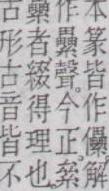 本篆皆作儽解
作纍聲。今正。絫
纍者綴得理也。
古形古音皆不